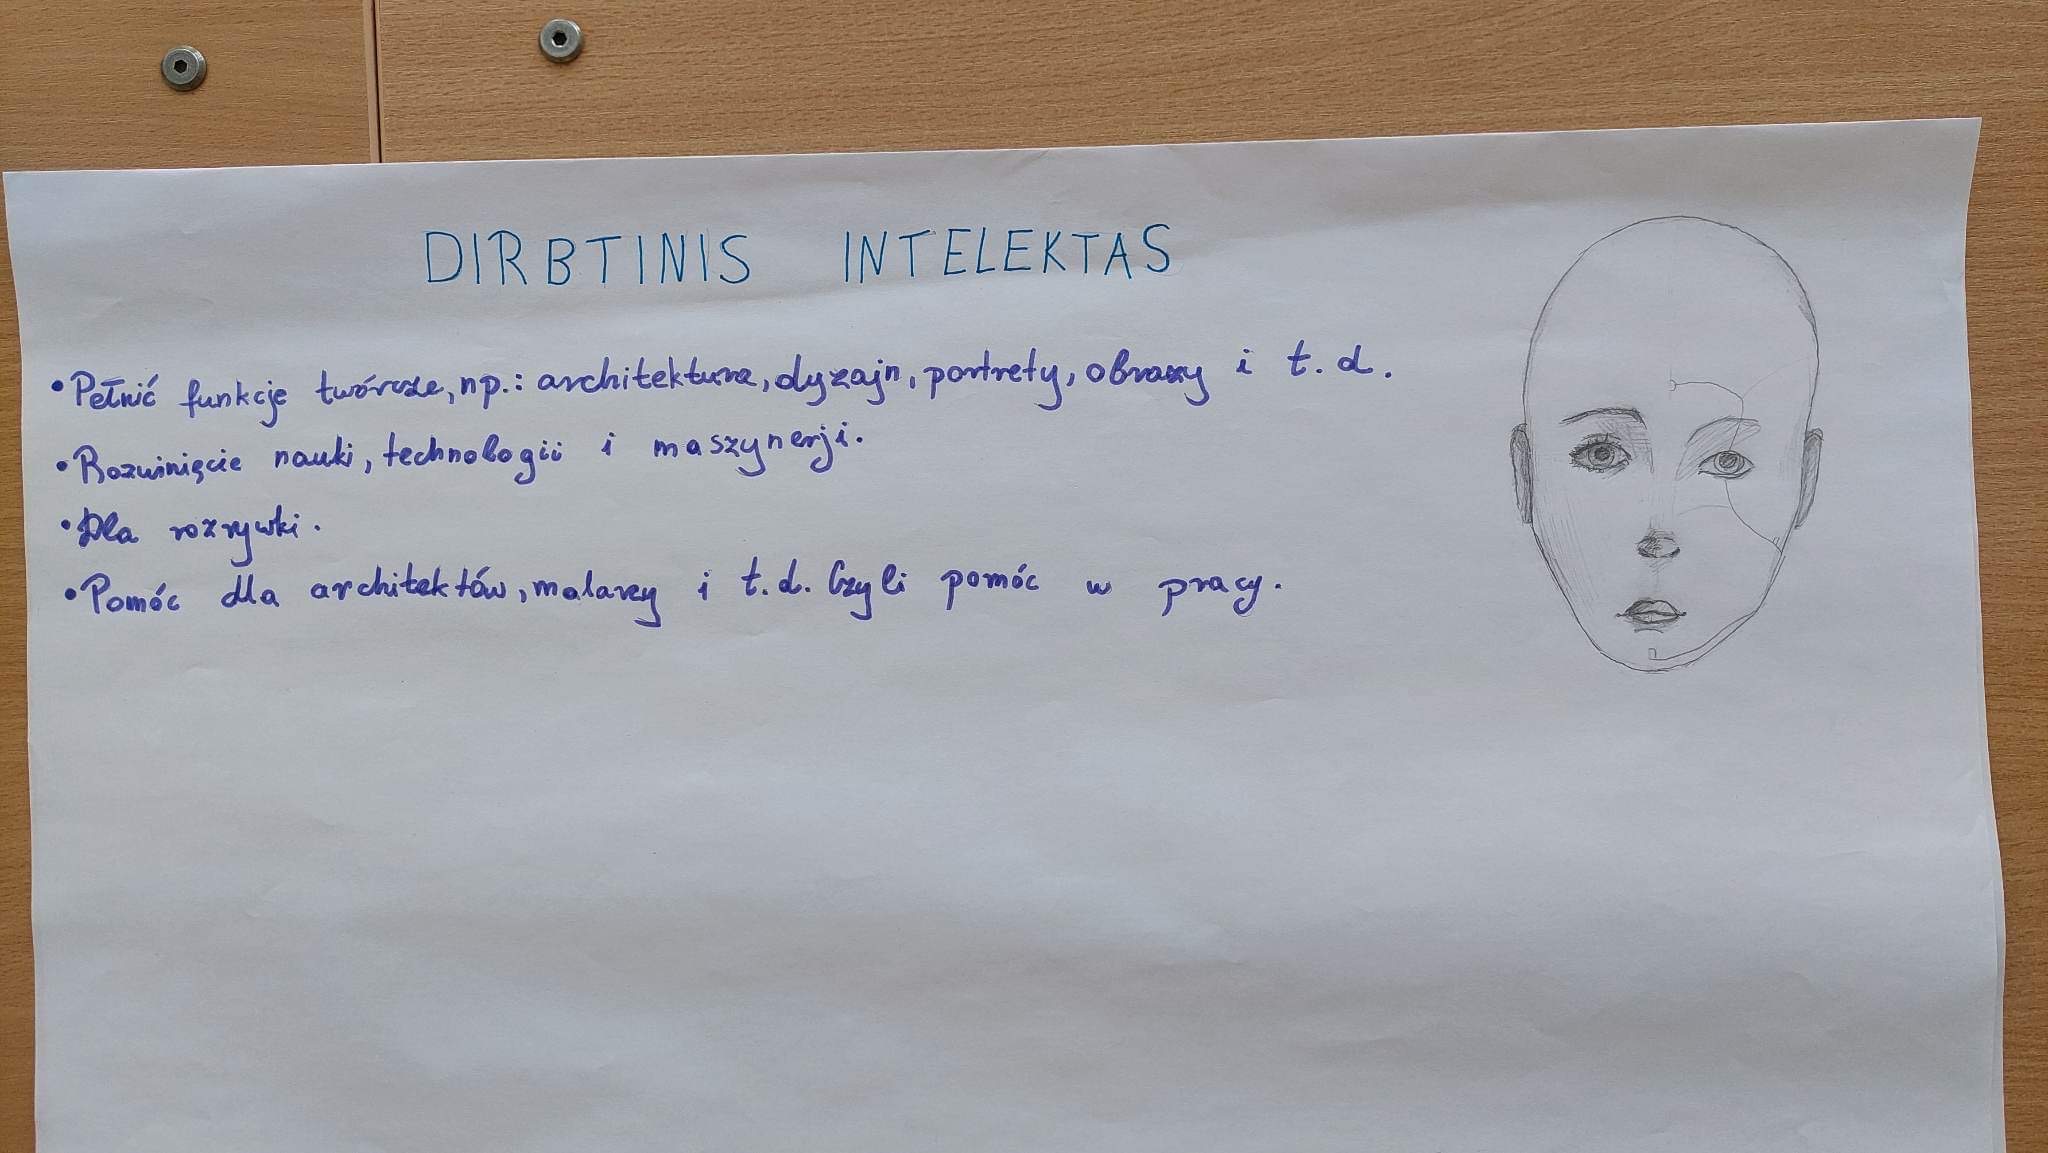 DIRBTINIS INTELEKTAS
• Pełnić funkcje twórcze, np.: architektura, dyzajn, portrety, obrazy i t. d.
• Rozwinięcie nauki, technologii i maszynerji.
• Dla rozrywki.
• Pomóc dla architektów, malarzy i t. d. Czyli pomóc w pracy.